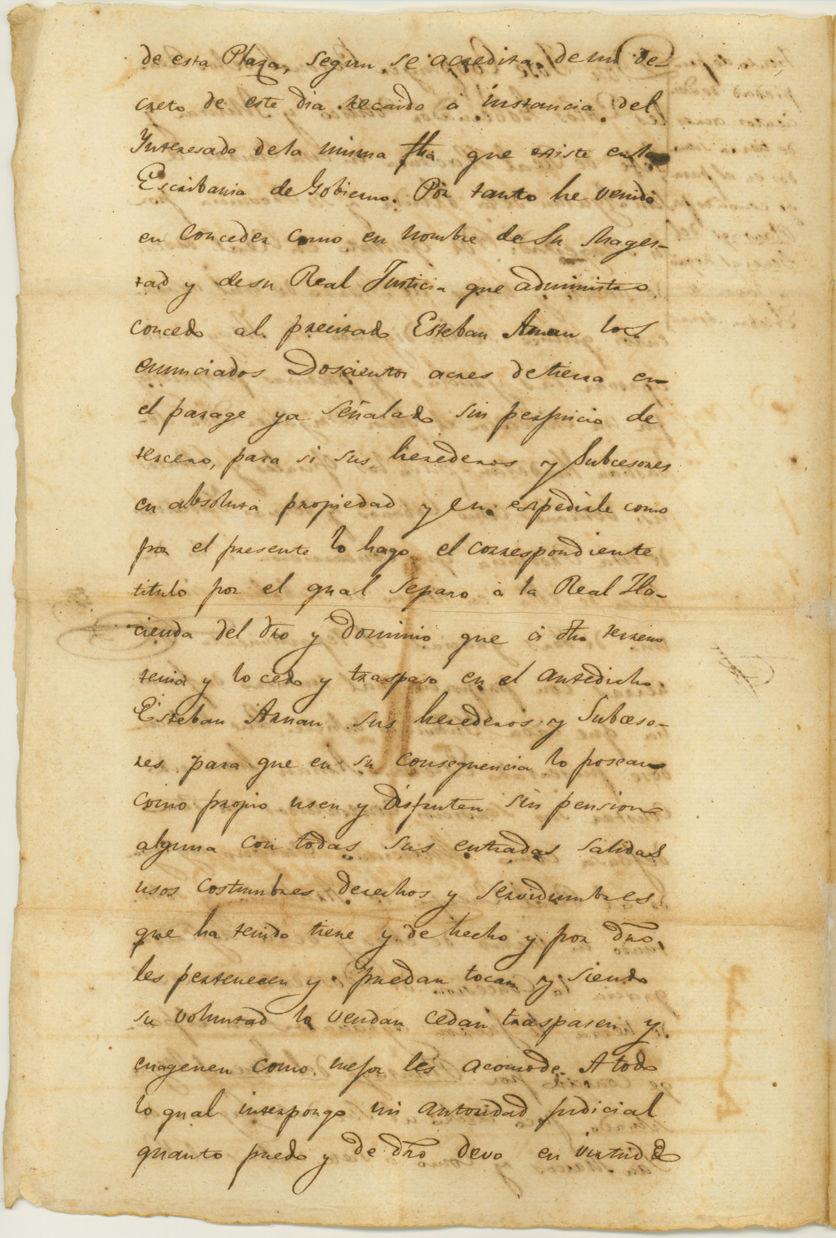 de esta Plaza, segun se acredita de mi de
creto de este dia recaido á instancia del
Interesado de la misma fha que existe en la
Escribania de Gobierno. Por tanto he venido
en conceder como en nombre de Su Mages-
tad y de su Real Justicia que administro
concedo al precitado Esteban Arnau los
enunciados Doscientos acres de tierra en
el parage ya señalado sin perjuicio de
tercero, para si sus herederos y Subcesores
en absoluta propiedad y en espedirle como
por el presente lo hago el correspondiente
titulo por el qual separo á la Real Ha-
cienda del dro y dominio que á dho terreno
tenia y lo cedo y traspaso en el antedicho
Esteban Arnau sus herederos y Subceso-
res para que en su consequencia lo posean
como propio usen y disfruten sin pension
alguna con todas sus entradas salidas
usos costumbres derechos y servidumbres
que ha tenido tiene y de hecho y por dro.
les pertenecen y puedan tocar y siendo
su voluntad lo vendan cedan traspasen y
enagenen como mejor les acomode. A todo
lo qual interpongo mi autoridad judicial
quanto puedo y de dro devo en virtud de